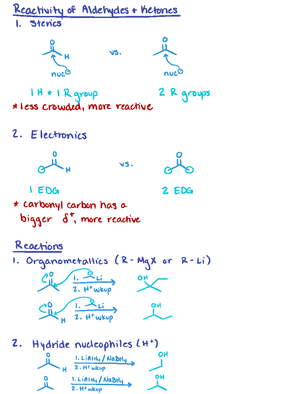 Reactivity of Aldehydes + Ketones
1. Sterics
O O
H vs.
nuc⊖ nuc⊖
1 H + 1 R group 2 R groups
* less crowded, more reactive
2. Electronics
O O
H vs.
1 EDG 2 EDG
* carbonyl carbon has a
bigger δ+, more reactive
Reactions
1. Organometallics (R-MgX or R-Li)
O 1. Li OH
2. H+ wkup
O 1. Li OH
H 2. H+ wkup
2. Hydride nucleophiles (H+)
O 1. LiAlH4/NaBH4 OH
H 2. H+ wkup
O 1. LiAlH4/NaBH4 OH
2. H+ wkup